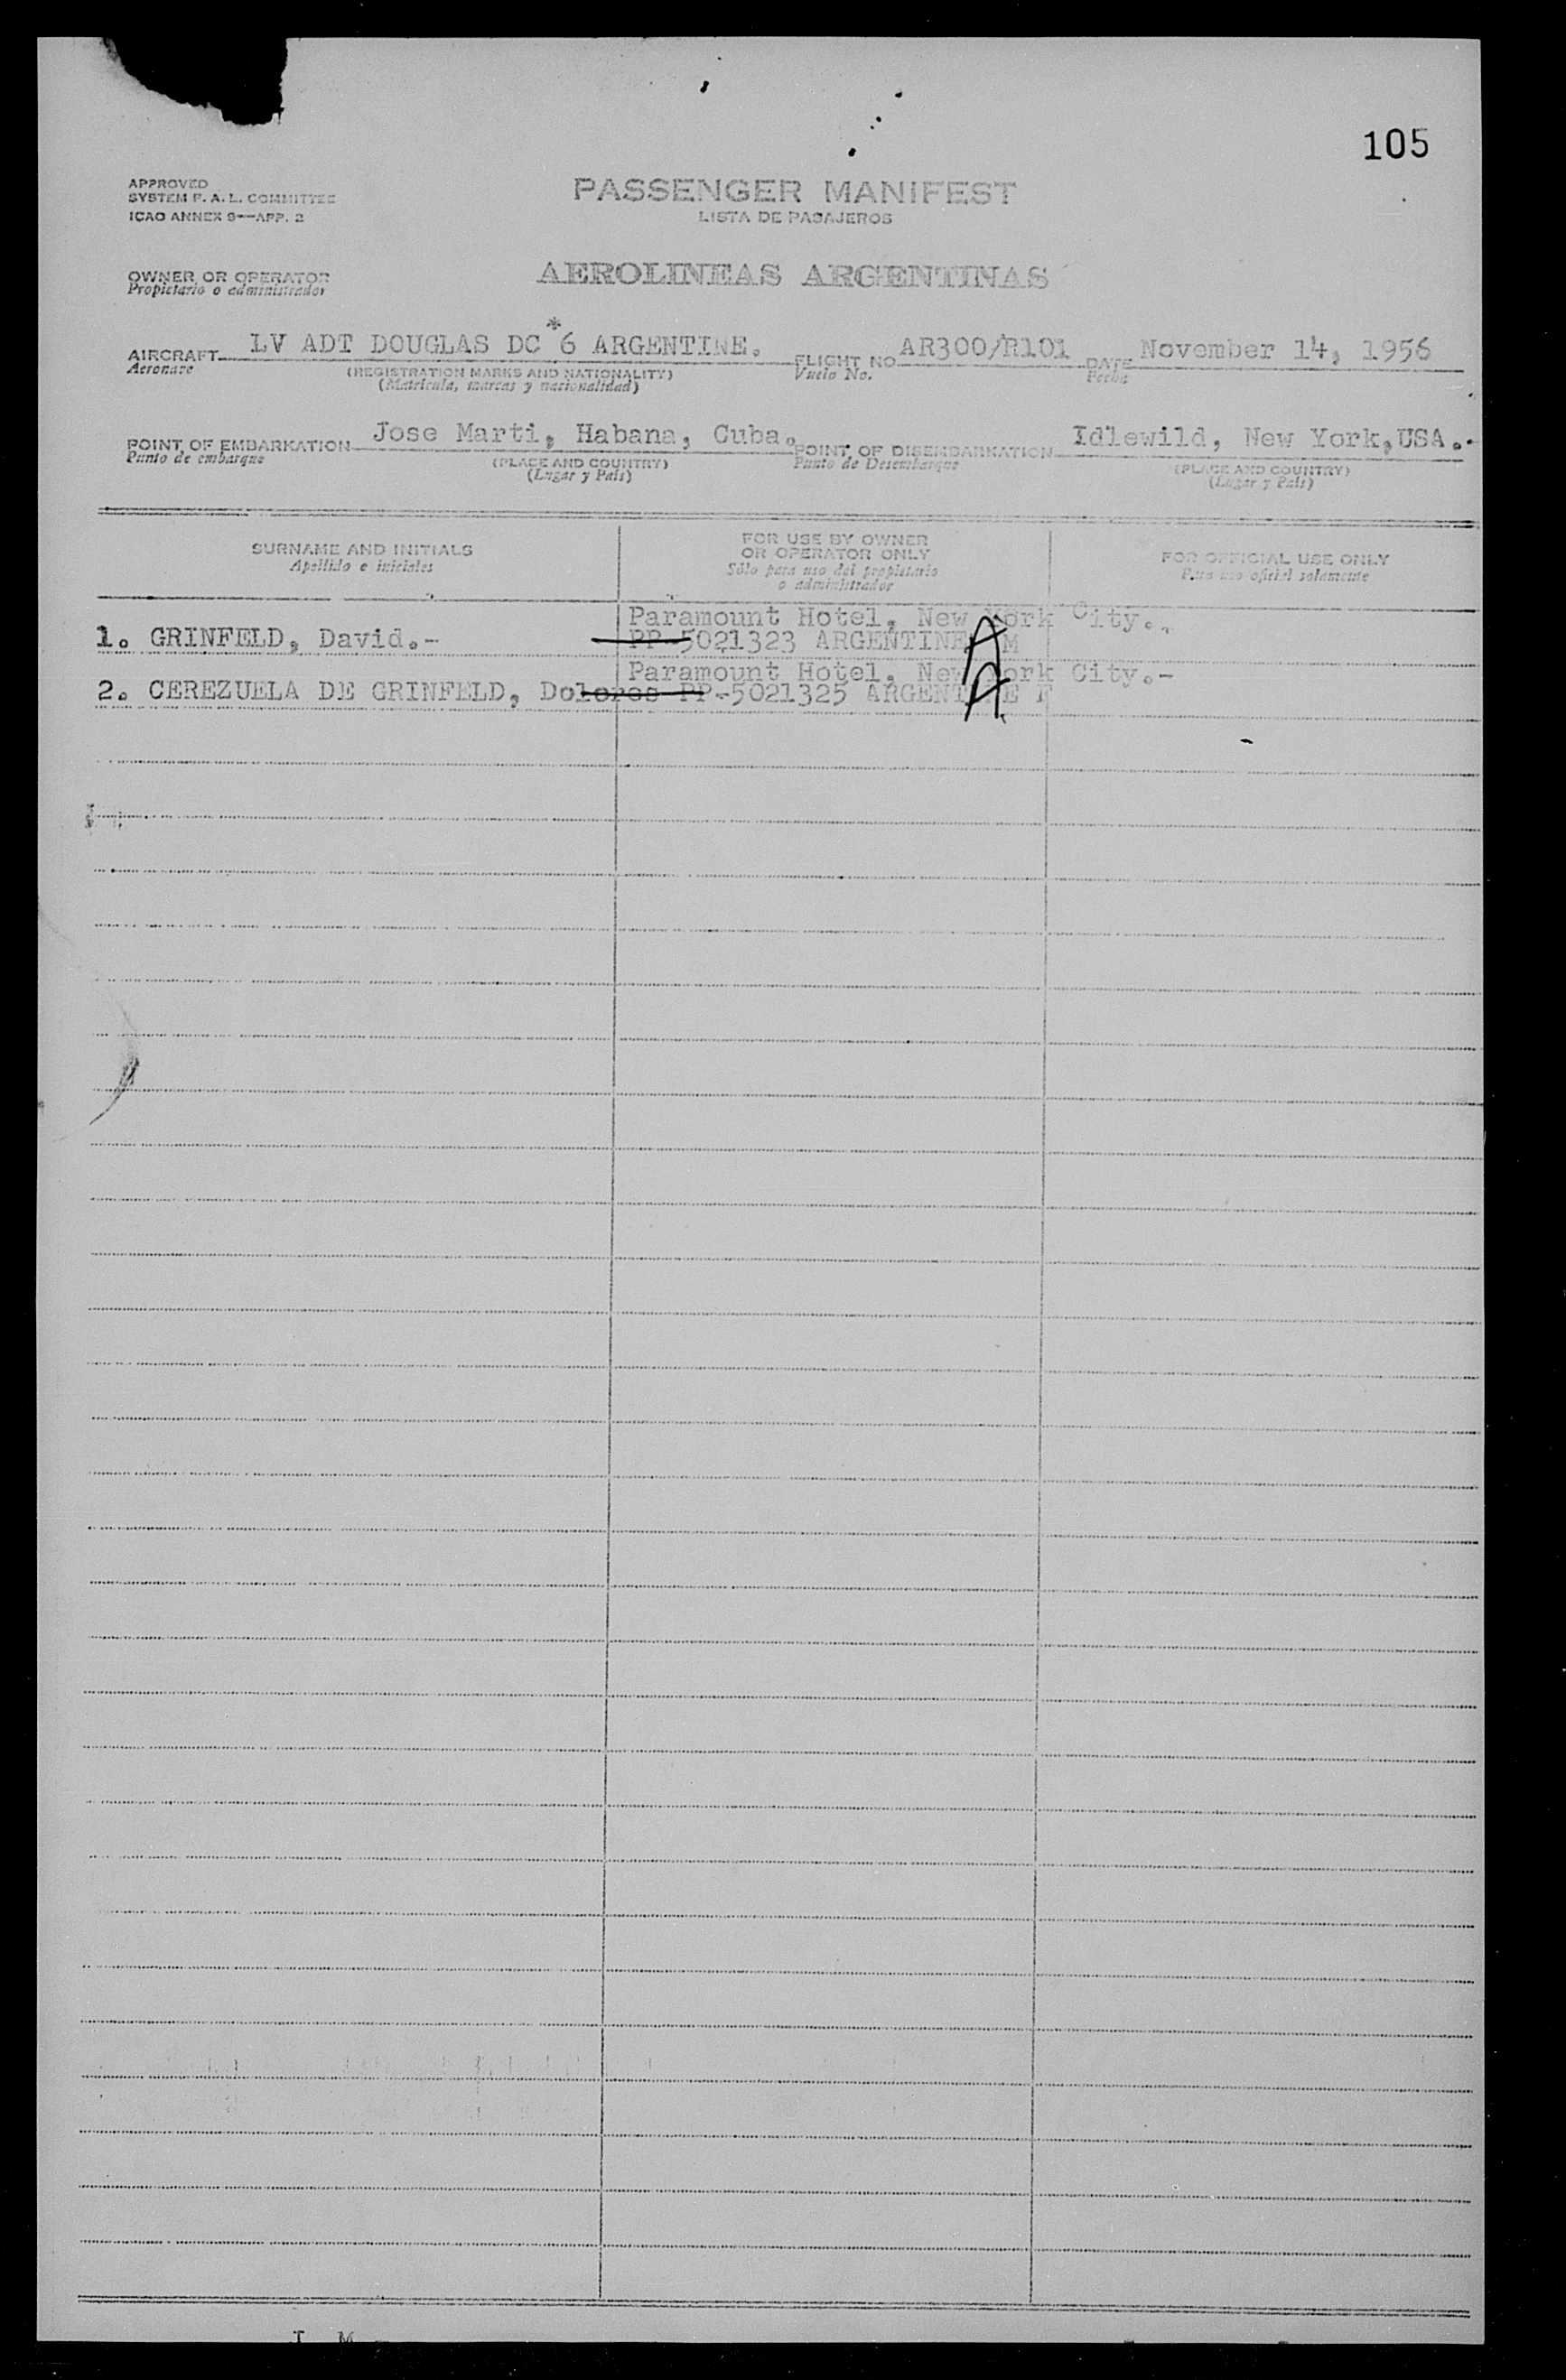 105
APPROVED
SYSTEM F. A. L. COMMITTEE
ICAO ANNEX 9—APP. 2
PASSENGER MANIFEST
LISTA DE PASAJEROS
OWNER OR OPERATOR
Propietario o administrador
AEROLINEAS ARGENTINAS
AIRCRAFT LV ADT DOUGLAS DC*6 ARGENTINE. FLIGHT NO AR300/R101 DATE November 14, 1956
Aeronave (REGISTRATION MARKS AND NATIONALITY) Vuelo No. Fecha
(Matrícula, marcas y nacionalidad)
POINT OF EMBARKATION Jose Marti, Habana, Cuba. POINT OF DISEMBARKATION Idlewild, New York, USA.-
Punto de embarque (PLACE AND COUNTRY) Punto de Desembarque (PLACE AND COUNTRY)
(Lugar y País) (Lugar y País)
SURNAME AND INITIALS
Apellido e iniciales
FOR USE BY OWNER
OR OPERATOR ONLY
Sólo para uso del propietario
o administrador
FOR OFFICIAL USE ONLY
Para uso oficial solamente
Paramount Hotel, New York City.-
1. GRINFELD, David.- PP-5021323 ARGENTINE M
A
Paramount Hotel, New York City.-
2. CEREZUELA DE GRINFELD, Dolores PP-5021325 ARGENTINE F
A